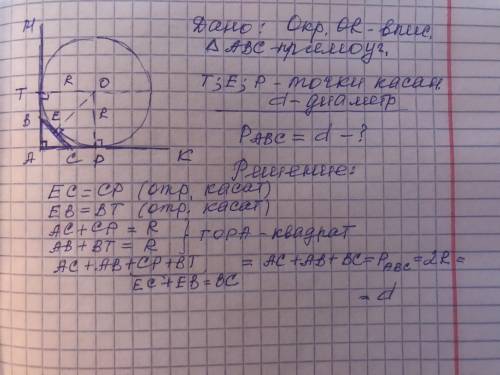 Дано: Окр. OR - впис.
△ABC - прямоуг.
T; E; P - точки касан.
d - диаметр
P ABC = d - ?
Решение:
M
T
R
O
B
E
R
A
C
P
K
EC = CP (отр. касат)
EB = BT (отр. касат)
AC + CP = R
AB + BT = R } TOPA - квадрат
AC + AB + CP + BT = AC + AB + BC = P ABC = 2R =
EC + EB = BC
= d